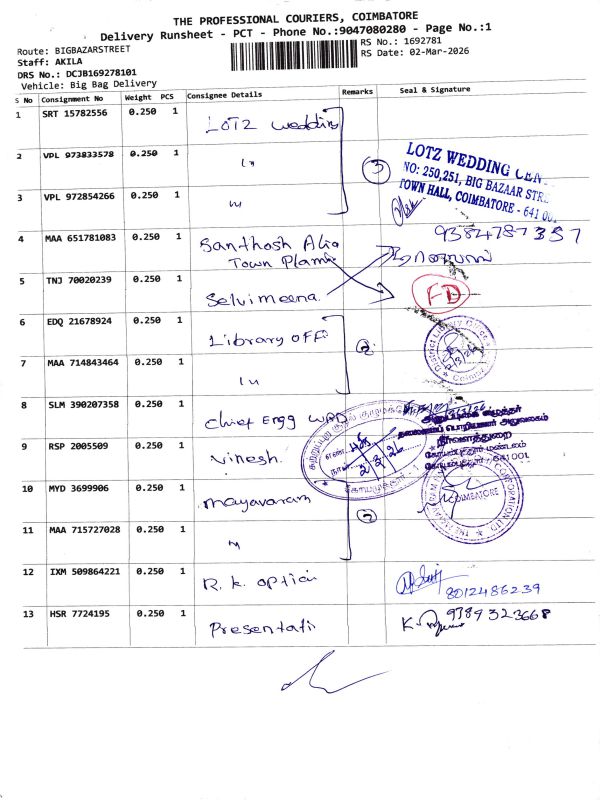 THE PROFESSIONAL COURIERS, COIMBATORE
Delivery Runsheet - PCT - Phone No.:9047080280 - Page No.:1
Route: BIGBAZARSTREET
RS No.: 1692781
Staff: AKILA
RS Date: 02-Mar-2026
DRS No.: DCJB169278101
Vehicle: Big Bag Delivery
S No Consignment No Weight PCS Consignee Details Remarks Seal & Signature
1 SRT 15782556 0.250 1 LOTZ wedding
2 VPL 973833578 0.250 1 "
3 VPL 972854266 0.250 1 " 3
LOTZ WEDDING
NO: 250,251, BIG BAZAAR
TOWN HALL, COIMBATORE - 641 001
4 MAA 651781083 0.250 1 Santhosh 9384787357
Town
5 TNJ 70020239 0.250 1 Selvimeena FD
6 EDQ 21678924 0.250 1 Library OFF
7 MAA 714843464 0.250 1 " 2
District Library Office
8 SLM 390207358 0.250 1 Chief Engg WRD
9 RSP 2005509 0.250 1 Vinesh
2/3/26
தலைமைப் பொறியாளர் அலுவலகம்
நீர்வளத்துறை
கோயம்புத்தூர் மண்டலம்
கோயம்புத்தூர் - 641 001
10 MYD 3699906 0.250 1 Mayavaram
11 MAA 715727028 0.250 1 " 2
COIMBATORE
12 IXM 509864221 0.250 1 R. K. Optici 8012486239
13 HSR 7724195 0.250 1 Presentati 9389323668